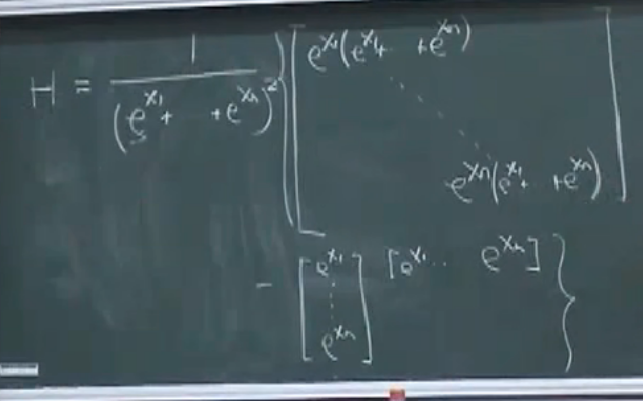 H = \frac{1}{(e^{x_1} + \cdots + e^{x_n})^2} \{ \begin{bmatrix} e^{x_1}(e^{x_1} + \cdots + e^{x_n}) & & \\ & \ddots & \\ & & e^{x_n}(e^{x_1} + \cdots + e^{x_n}) \end{bmatrix}
- \begin{bmatrix} e^{x_1} \\ \vdots \\ e^{x_n} \end{bmatrix} [e^{x_1} \cdots e^{x_n}] \}